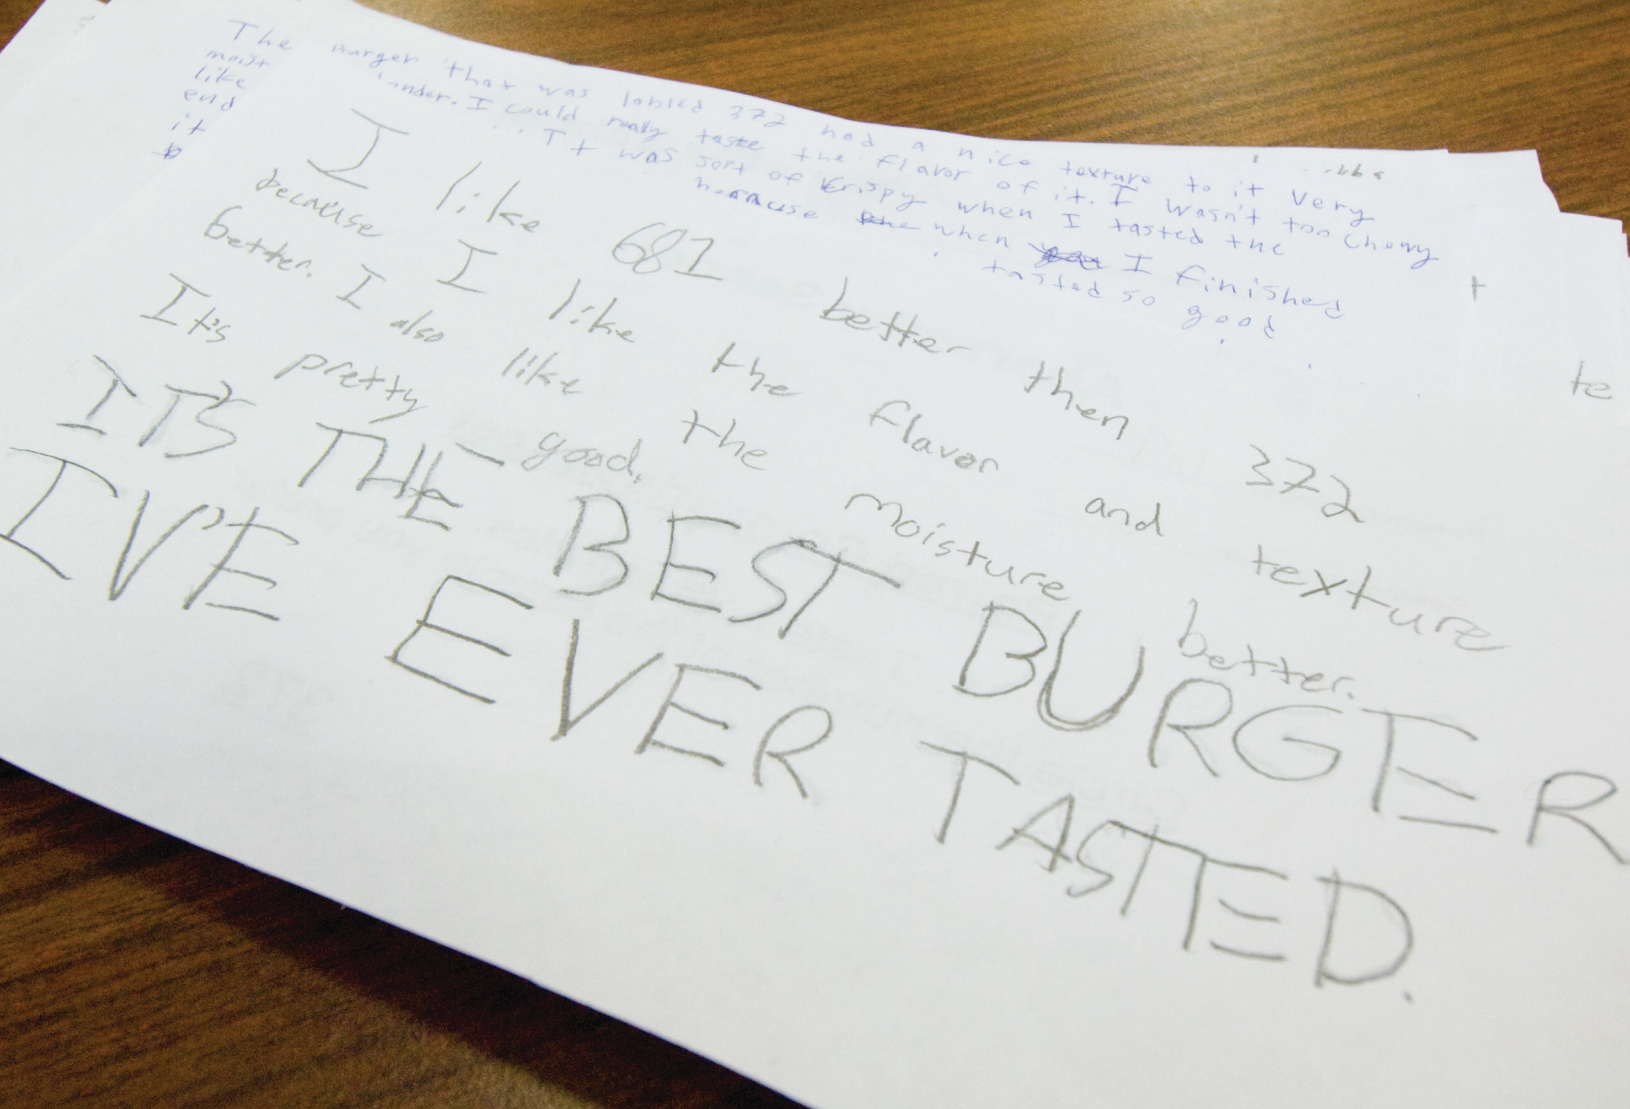 The burger that was labled 372 had a nice texture to it Very
moist I could really taste the flavor of it. I wasn't too Chewy
like It was sort of Krispy when I tasted the
end because when I finished
it tasted so good
I like 681 better then 372
because I like the flavor and texture
better. I also like the moisture better.
It's pretty good,
IT'S THE BEST BURGER
I'VE EVER TASTED.